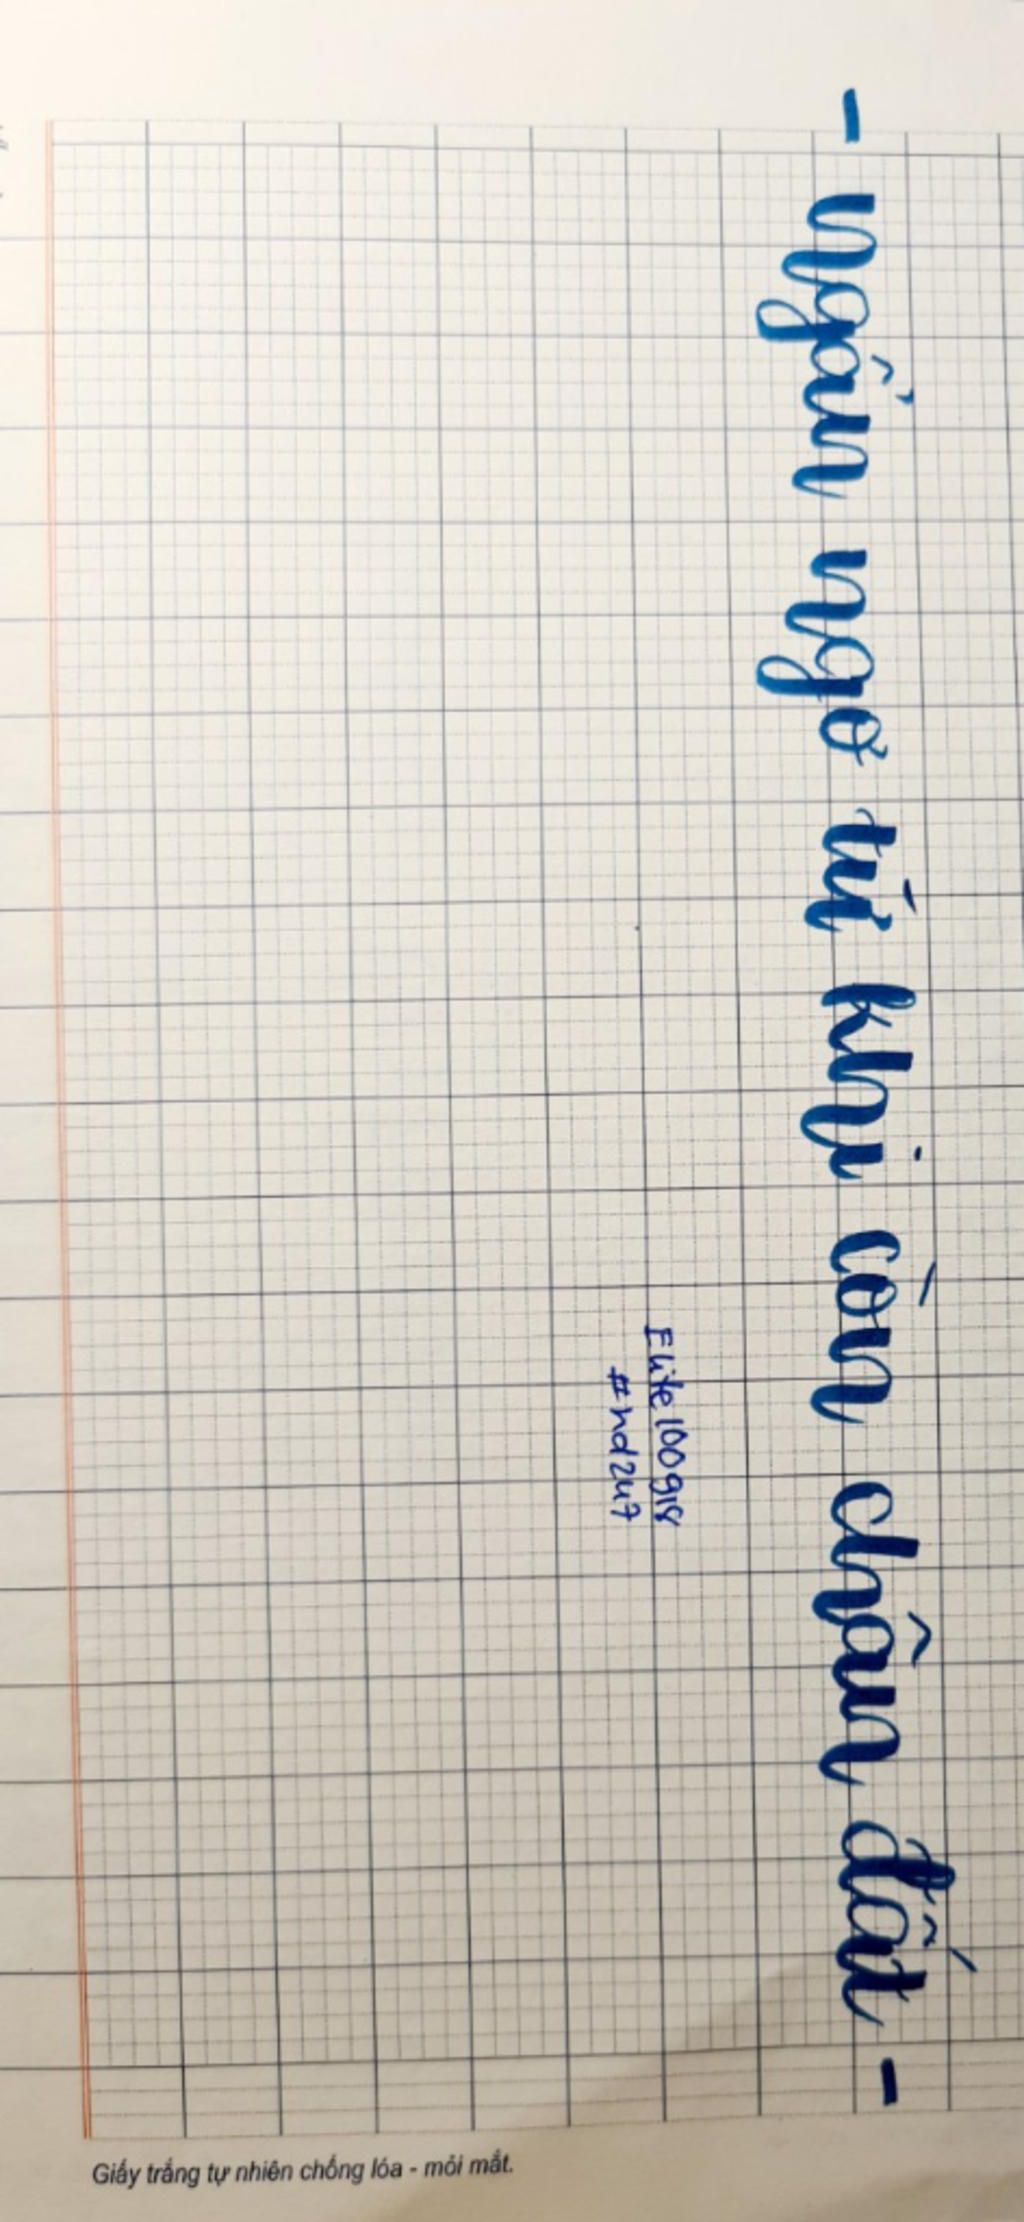 - ngẩn ngơ từ khi còn chân đất -
Elite100918
#nd247
Giấy trắng tự nhiên chống lóa - mỏi mắt.